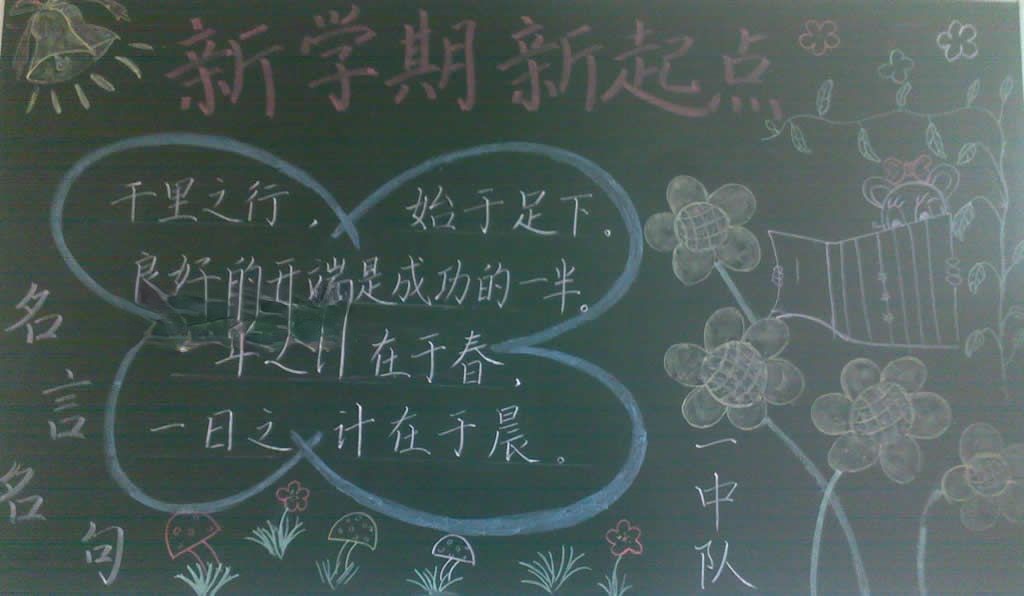 新学期新起点
千里之行，始于足下。
良好的开端是成功的一半。
年之计在于春，
一日之计在于晨。
名言名句
一中队